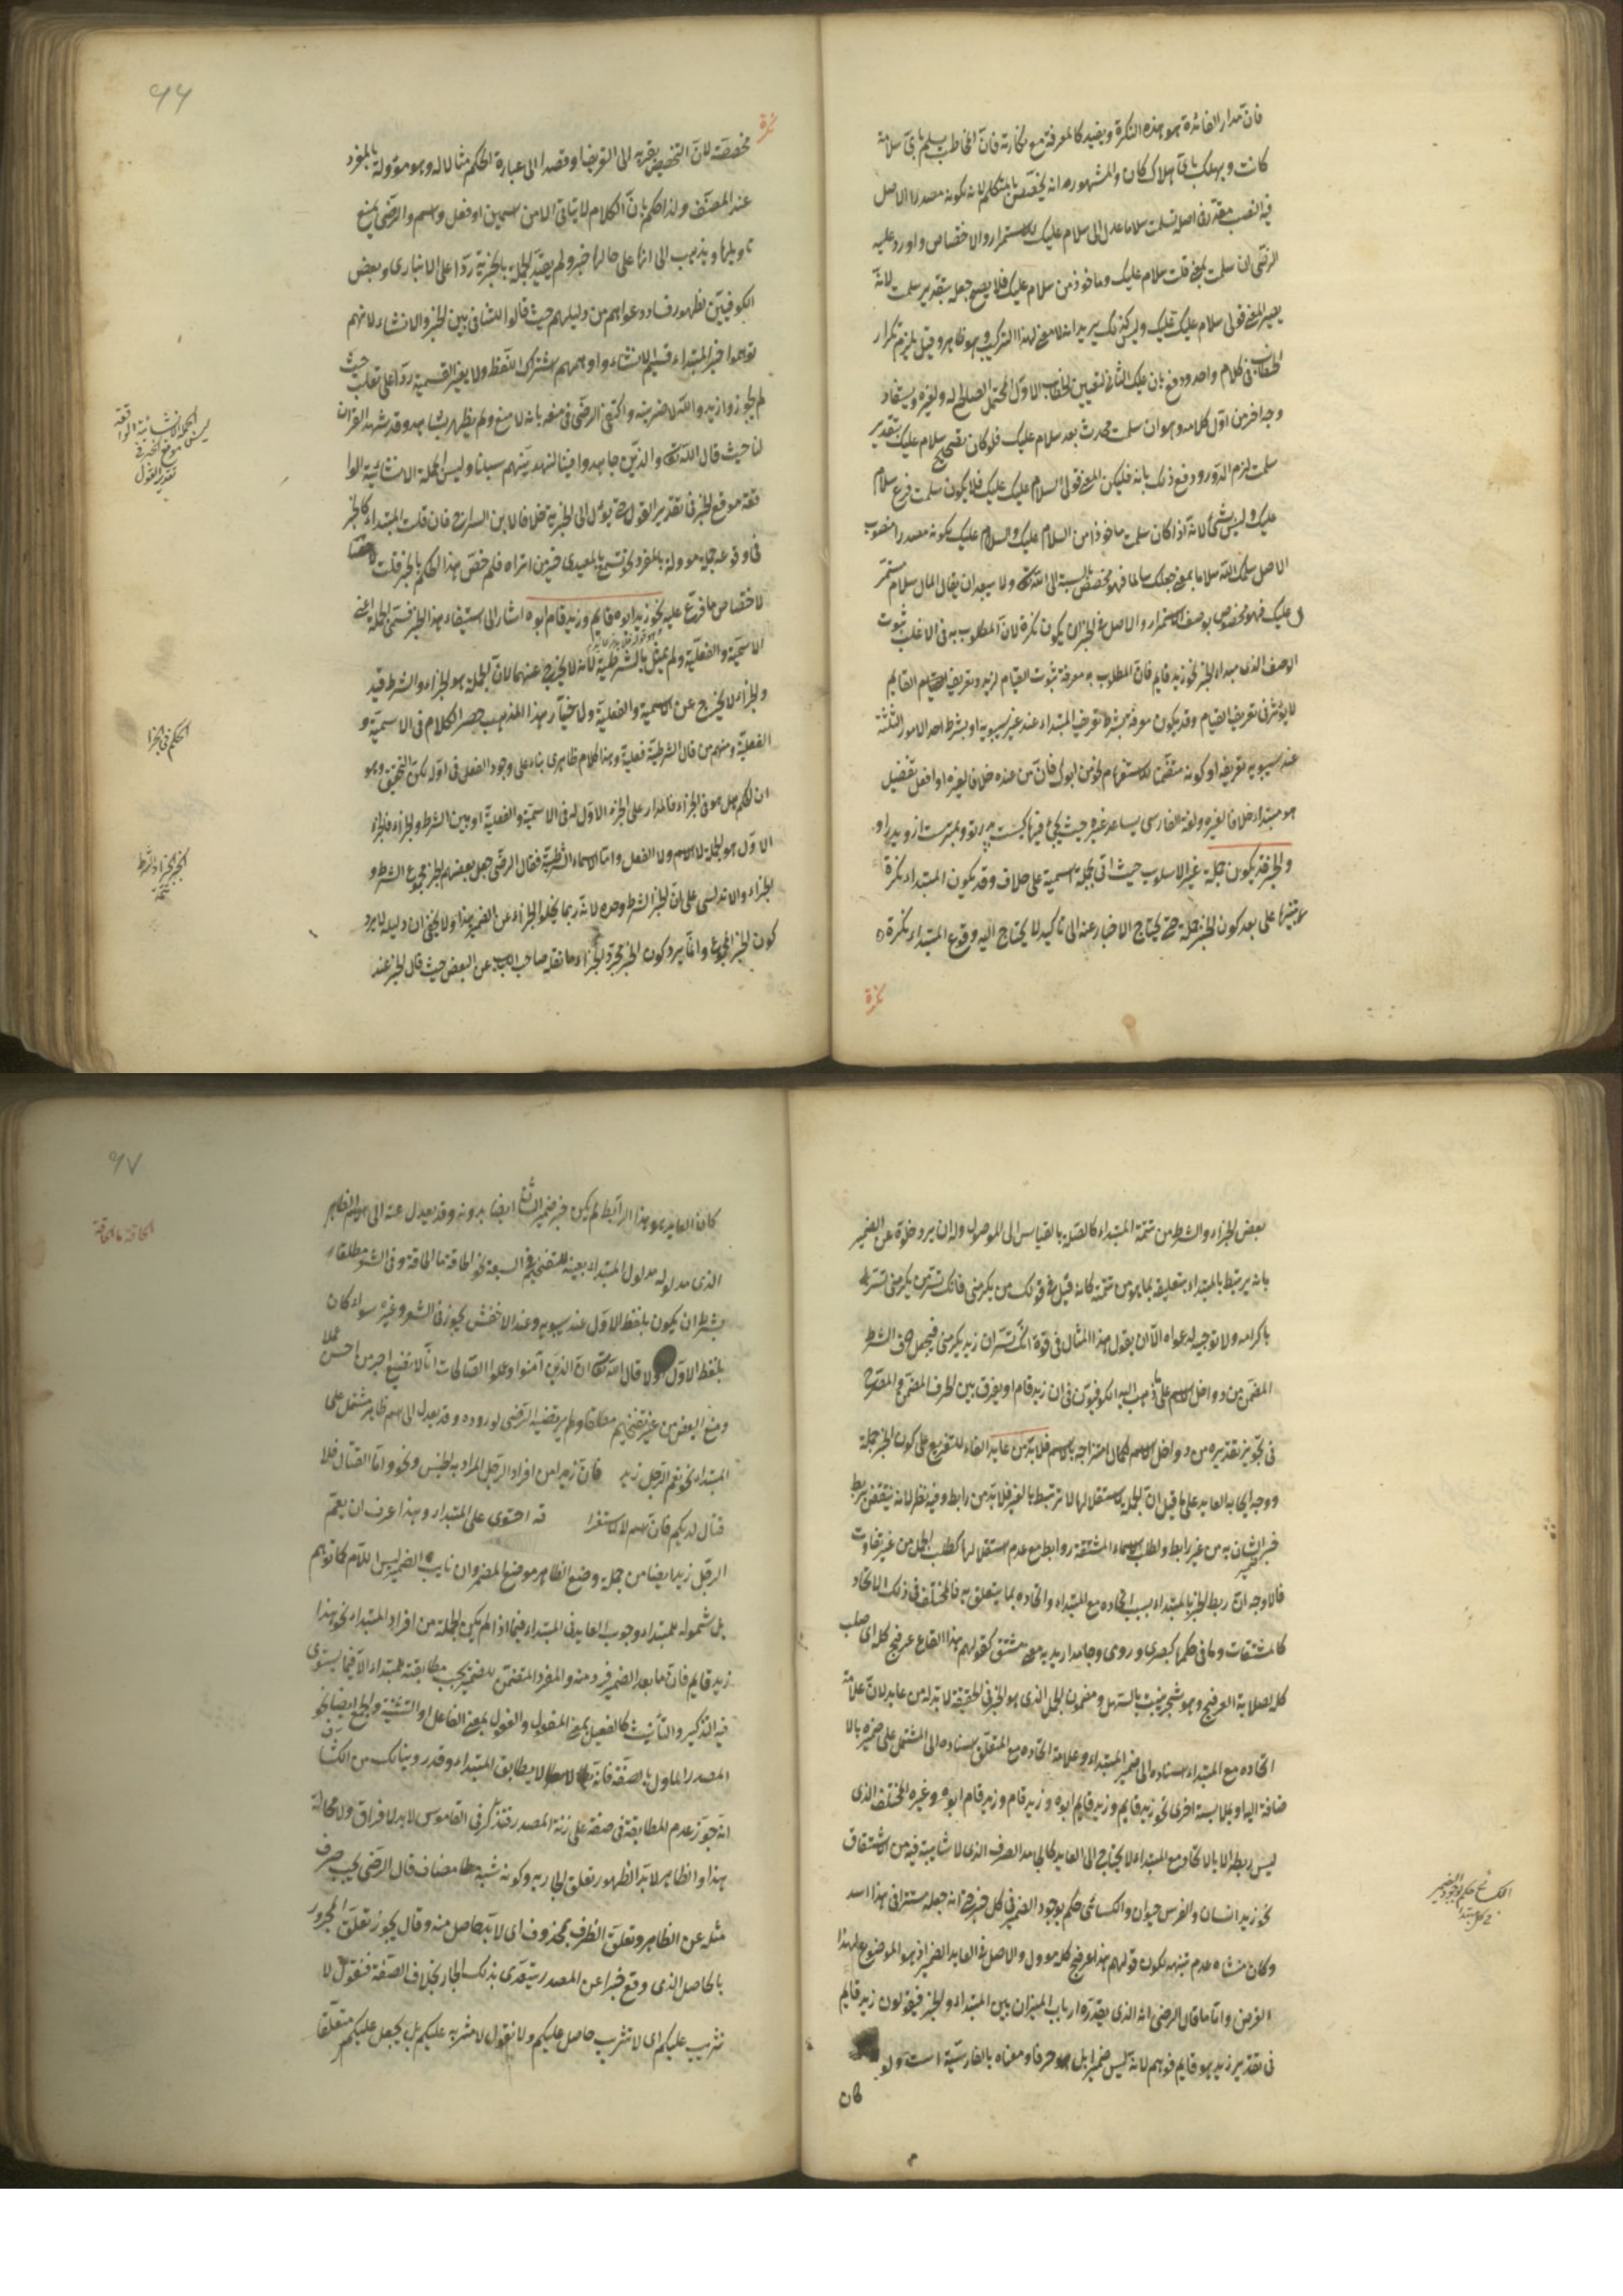 فان مدار الفائدة هو هذه النكرة ويفيد كالمعرفة مع نكارته فان المخاطب يسلم باى سلامة
كانت ويهلك باى هلاك كان والمشهور انه يختص بالمتكلم لانه لكونه مصدرا الاصل
فيه النصب معدول اصله سلمت سلاما عدل الى سلام عليك للاستمرار والاختصاص واورد عليه
الرضى ان سلمت بمعنى قلت سلام عليك وماخوذ من سلام عليك فلا يصح جعله بتقدير سلمت لانه
يصير المعنى قولى سلام عليك عليك وليس كذلك يريد انه لا معنى لهذا التركيب وهو ظاهر وقيل يلزم تكرار
الخطاب فى كلام واحد ودفع بان عليك الثانى لتعيين الخطاب الاول المحتمل الصالح له ولغيره ويستفاد
وجه اخر من اول كلامه وهو ان سلمت محدث بعد سلام عليك فلو كان تصحيح سلام عليك بتقدير
سلمت لزم الدور ودفع ذلك بانه فليكن المعنى قولى السلام عليك عليك فلا يكون سلمت فرع سلام
عليك وليس بشئ لانه اذا كان سلمت ماخوذا من السلام عليك والسلام عليك لكونه مصدرا منصوب
الاصل سلمك الله سلاما بمعنى جعلك سالما فهو مخصص بالنسبة الى الله تعالى ولا يبعد ان يقال المال سلام مستمر
عليك فهو مخصوص بوصف الاستمرار والاصل فى الخبر ان يكون نكرة لان المطلوب به فى الاغلب ثبوت
الوصف الذى مبداء الخبر نحو زيد قايم فان المطلوب به معرفة ثبوت القيام لزيد وتعريف القيام القايم
لا يؤثر فى تعريف القيام وقد يكون معرفة بشرط تعريف المبتداء عند غير سيبويه او بشرط احد الامور الثلثة
عند سيبويه تعريفه او كونه متضمنا للاستفهام نحو من ابوك فان من عنده خلافا لغيره او افعل تفضيل
هو مبتداء خلافا لغيره ولغة الفارسى يساعد غيره حيث يجئ فيها كيست پدر تو وبهترست از وپدر او
والخبر قد يكون جملة غير الاسلوب حيث اتى بجملة اسمية على خلاف وقد يكون المبتداء نكرة
تنبيها على بعد كون الخبر جملة حتى يحتاج الاخبار عنه الى تاكيد لا يحتاج اليه وقوع المبتداء نكرة
نكرة
٦٦
نكرة
مخصصة لان التخصيص يقربه الى التعريف او قصدا الى عبارة الحكم مثالا له وهو مؤولة بالمفرد
عند المصنف ولذا حكم بان الكلام لا يتاتى الا من اسمين او فعل واسم والرضى يمنع
تاويلها ويذهب الى انها على حالها خبر ولم يقيد الجملة بالخبرية ردا على الانبارى وبعض
الكوفيين لظهور فساد دعواهم من دليلهم حيث قالوا للتنافى بين الخبر والانشاء لانهم
توهموا خبر المبتداء قسيم الانشاء واوهمهم اشتراك اللفظ ولا بغير القسمية ردا على ثعلب حيث
لم يجوز زيد والله لاضربنه واكتفى الرضى فى منعه بانه لا منع ولم يظهر بشاهد وقد شهد القرآن
لنا حيث قال الله تعالى والذين جاهدوا فينا لنهدينهم سبلنا وليس الجملة الانشائية الوا
قعة موقع الخبر فى تقدير القول حتى يؤل الى الخبرية خلافا لابن السراج فان قلت المبتداء كالخبر
فى وقوعه جملة مؤولة بالمفرد نحو تسمع بالمعيدى خير من ان تراه فلم خص هذا الحكم بالخبر قلت
لاختصاص ما فرع عليه نحو زيد ابوه قايم وزيد قام ابوه اشار الى استيفاء هذا الخبر قسمى الجملة اعنى
الاسمية والفعلية ولم يمثل بالشرطية لانه لا يخرج عنهما لان الجملة هو الجزاء والشرط قيد
والجزاء لا يخرج عن الاسمية والفعلية ولاختيار هذا المذهب حصر الكلام فى الاسمية و
الفعلية ومنهم من قال الشرطية فعلية وهذا كلام ظاهرى بناء على وجود الفعل فى اوله لكن التحقيق وهو
ان الحكم هل هو فى الجزاء فالمدار على الجزء الاول له فى الاسمية والفعلية او بين الشرط والجزاء فالجزء
الاول هو الجملة لا الاسم ولا الفعل واما الاسماء الشرطية فقال الرضى جعل بعضهم الخبر مجموع الشرط و
الجزاء والاندلسى على ان الخبر الشرط وحده لانه ربما يخلوا الجزاء عن الضمير هذا ولا يخفى ان دليله لا يرد
كون الخبر المجموع وانما يرد كون الخبر مجرد الجزاء وما نقله صاحب اللب عن البعض حيث قال الخبر عند
ليس الجملة الانشائية الواقعة
موقع الخبر فى
تقدير القول
الحكم فى الجزا
الخبر الجزاء والشرط
بعض الجزاء والشرط من تتمة المبتداء كالصلة بالقياس الى الموصول وله ان يرد خلوه عن الضمير
بانه يرتبط بالمبتداء بتعليقه بما هو من تتمته كانه قيل فى قولك من يكرمنى فانك تسر من يكرمنى تسر بشرط
باكرامه ولا توجيه لدعواه الا ان يقول هذا المثال فى قوة انك تسر ان زيد يكرمنى فيجعل حرف الشرط
المضمن من دواخل الاسم على ما ذهب اليه الكوفيون فى ان زيد قام او يفرق بين الحرف المضمن والمصرح
فى تجويز تقديره من دواخل الاسم لكمال امتزاجه بالاسم فلا بد من عايد الفاء للتفريع على كون الخبر جملة
ووجه ايجابه العايد على ما قيل ان الجملة لاستقلالها لا ترتبط بالغير فلا بد من رابط وفيه نظر لانه ينتقض بربط
خبر ضمير الشان به من غير رابط ولطلب الاسماء المشتقة روابط مع عدم استقلالها كطلب الجمل من غير تفاوت
فالاوجه ان ربط الخبر بالمبتداء بسبب اتحاده مع المبتداء واتحاده بما يتعلق به فالمختلف فى ذلك الاتحاد
كالمشتقات وما فى حكمها كبصرى ورومى وجامد اريد به معنى مشتق كقولهم هذا القاع عرفج كله اى صلب
كله لصلابة العرفج وهو شجر ينبت بالسهل ومضمون الجمل الذى هو الخبر فى الحقيقة لا بد له من عايد لان علامة
اتحاده مع المبتداء اسناده الى ضمير المبتداء وعلامة اتحاده مع المتعلق اسناده الى المشتمل على ضميره بالا
ضافة اليه او بملابسة اخرى نحو زيد قايم وزيد قايم ابوه وزيد قام وزيد قام ابوه وغيره المختلف الذى
ليس ربطه الا بالاتحاد مع المبتداء لا يحتاج الى العايد كالجامد الصرف الذى لا شايبة فيه من الاشتقاق
نحو زيد انسان والفرس حيوان والكسائى حكم بوجود الضمير فى كل خبر حتى انه جعله مستترا فى هذا اسد
وكان منشاء عدم تنبهه لكون قولهم هذا عرفج كله مؤول والاصل فى العايد الضمير اذ هو الموضوع لهذا
الغرض واما ما قال الرضى انه الذى يقدره ارباب الميزان بين المبتداء والخبر فيقولون زيد قايم
فى تقدير زيد هو قايم فوهم لانه ليس ضميرا بل حرفا ومعناه بالفارسية است ولو
كان
الكسائى حكم بوجود الضمير
فى كل مبتدا
٦٧
كان العايد هو هذا الرابط لم يكن خبر ضمير الشان ايضا بدونه وقد يعدل عنه الى الاسم الظاهر
الذى مدلوله مدلول المبتداء بعينه للتفخيم فى السعة نحو الحاقة ما الحاقة وفى الشعر مطلقا
بشرط ان يكون بلفظ الاول عند سيبويه وعند الاخفش يجوز فى الشعر وغيره سواء كان
بلفظ الاول اولا قال الله تعالى ان الذين آمنوا وعملوا الصالحات انا لا نضيع اجر من احسن عملا
ومنع البعض من غير تفخيم مطلقا ولم يرتضيه الرضى لوروده وقد يعدل الى اسم ظاهر مشتمل على
المبتداء نحو نعم الرجل زيد فان زيدا من افراد الرجل المراد به الجنس ونحو واما القتال فلا
قتال لديكم فان اسم لا لاستغرا قه احتوى على المبتداء وبهذا عرف ان نعم
الرجل زيد ايضا من جملة وضع الظاهر موضع المضمر وان نايب الضمير ليس اللام كما توهم
بل شموله للمبتداء وجوب العايد فى المبتداء فيما اذا لم يكن الجملة من افراد المبتداء نحو هذا
زيد قايم فان ما بعد الضمير فرد منه والمفرد المتضمن للضمير يجب مطابقته للمبتداء الا فيما يستوى
فيه التذكير والتأنيث كالفعيل بمعنى المفعول والفعول بمعنى الفاعل او التثنية والجمع ايضا نحو
المصدر الماول بالصفة فانه لا يطابق المبتداء وقد روينا لك من الكشاف
انه جوز عدم المطابقة فى صفة على زنة المصدر فتذكر فى القاموس لا بد لا فراق ولا محالة
هذا والظاهر لا بد الظهور تعلق الجار به وكونه شبه مضاف قال الرضى يجب صرف
مثله عن الظاهر وتعلق الظرف بمحذوف اى لا بد حاصل منه وقال يجوز تعلق المجرور
بالحاصل الذى وقع خبرا عن المصدر يتعدى بذلك الجار بخلاف الصفة فنقول لا
تثريب عليكم اى لا تثريب حاصل عليكم ولا نقول لا مثربه عليكم بل يجعل عليكم متعلقا
الحاقة ما الحاقة